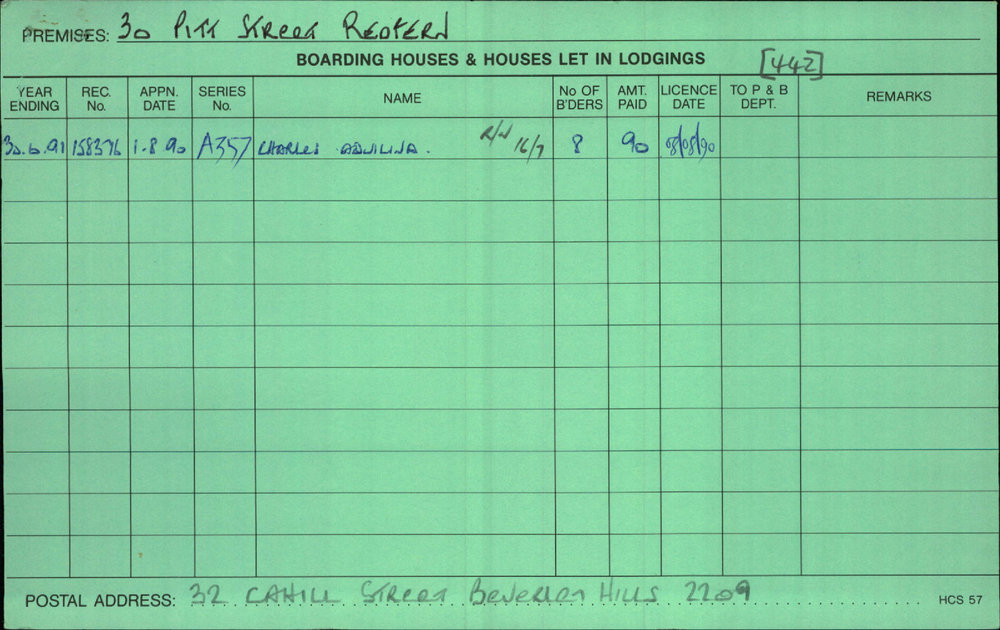 PREMISES: 30 PITT STREET REDFERN
BOARDING HOUSES & HOUSES LET IN LODGINGS [442]
YEAR ENDING REC. No. APPN. DATE SERIES No. NAME No OF B'DERS AMT. PAID LICENCE DATE TO P & B DEPT. REMARKS
30.6.91 158376 1.8.90 A357 CHARLES AQUILINA. R/N 16/7 8 90 08/08/90
POSTAL ADDRESS: 32 CAHILL STREET BEVERLEY HILLS 2209 HCS 57